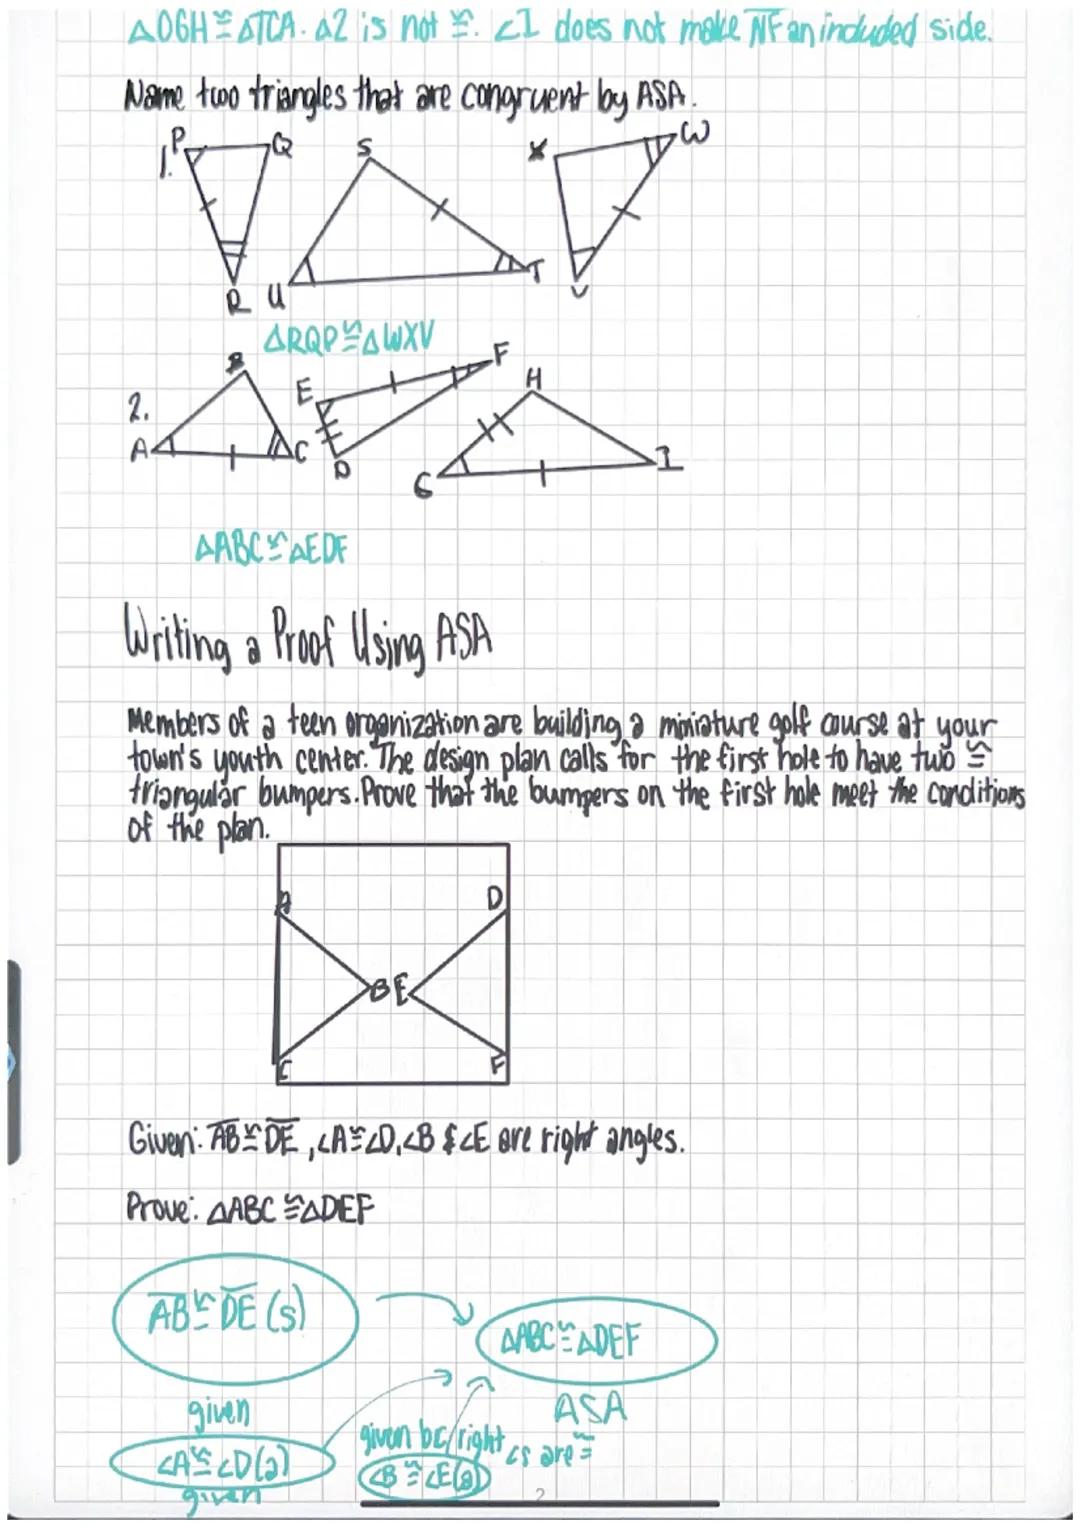 △OGH ≅ △TCA. △2 is not ≅. ∠I does not make N͞F an included side.
Name two triangles that are congruent by ASA.
1.
P Q S X W
R U T V
△RQP ≅ △WXV
2.
B E F H
A C D G I
△ABC ≅ △EDF
Writing a Proof Using ASA
Members of a teen organization are building a miniature golf course at your
town's youth center. The design plan calls for the first hole to have two ≅
triangular bumpers. Prove that the bumpers on the first hole meet the conditions
of the plan.
A D
B E
C F
Given: A͞B ≅ D͞E, ∠A ≅ ∠D, ∠B & ∠E are right angles.
Prove: △ABC ≅ △DEF
A͞B ≅ D͞E (s)
△ABC ≅ △DEF
given
ASA
∠A ≅ ∠D (a)
given
given bc right ∠s are ≅
∠B ≅ ∠E (a)
2